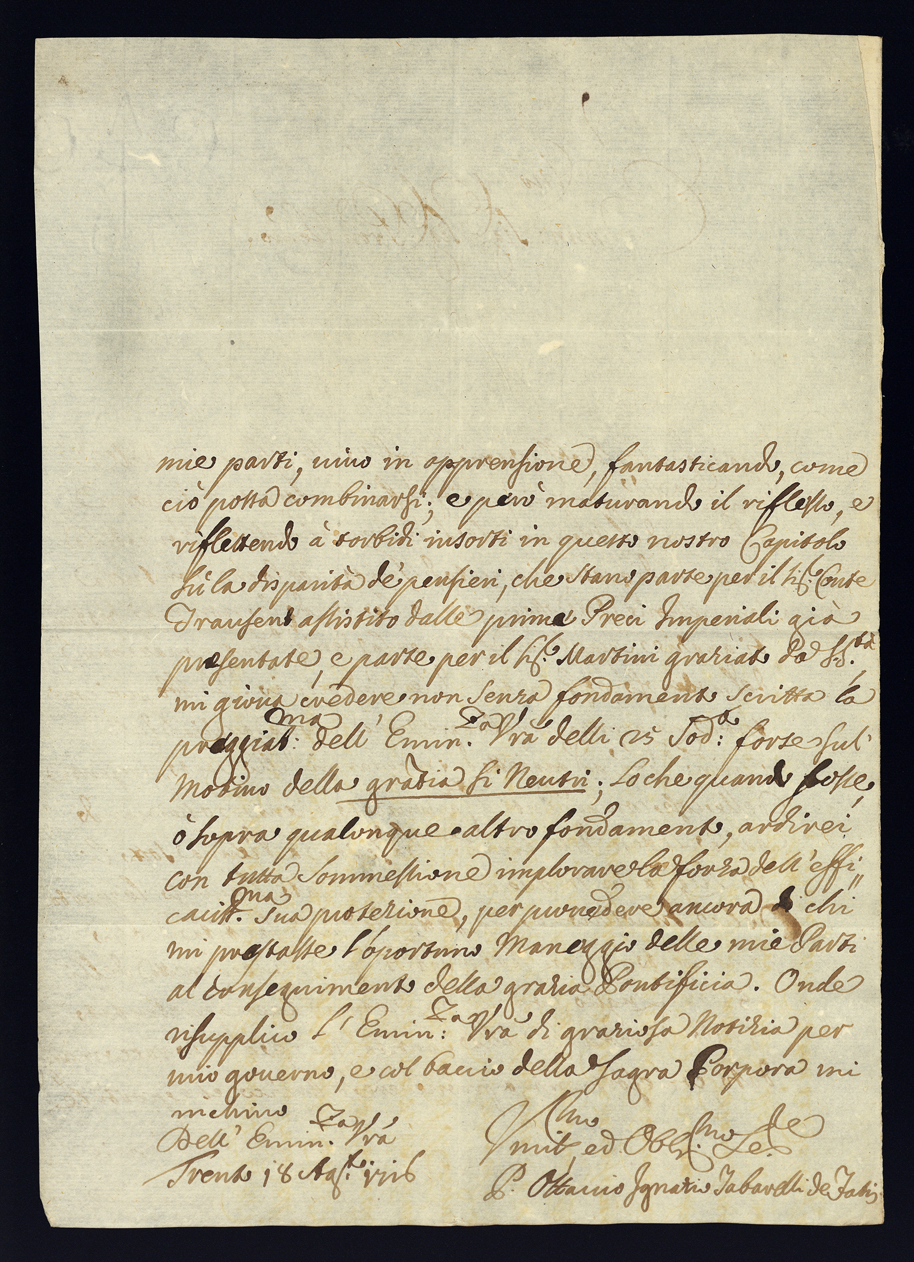 mie parti, vivo in apprensione, fantasticando, come
ciò possa combinarsi; e però maturando il riflesso, e
riflettendo à torbidi insorti in questo nostro Capitolo
sù la disparità de' pensieri, che stano parte per il Sig.r Conte
assistito dalle prime Preci Imperiali già
presentate, e parte per il Sig.r Martini graziato da S. S.tà
mi giova credere non senza fondamento scritta la
preggiat:ma dell' Emin.za Vra delli 25 Sod.o: forse sul'
Motivo della gratia si Neutri; Loche quando fosse,
ò sopra qualonque altro fondamento, ardirei
con tutta sommessione implorare la forza dell' effi„
caciss.ma Sua protezione, per provedere ancora di chi
mi prestasse l'oportuno Maneggio delle mie Parti
al conseguimento della grazia Pontificia. Onde
risupplico l' Emin:za Vra di graziosa Notizia per
mio governo, e col baccio della Sagra Porpora mi
inchino
Dell' Emin.za Vra
Trento 18 Ag.to 1716
Vmil.mo, ed Obl.mo Se.de
P. Ottavio Ignazio Tabarelli de Fatis